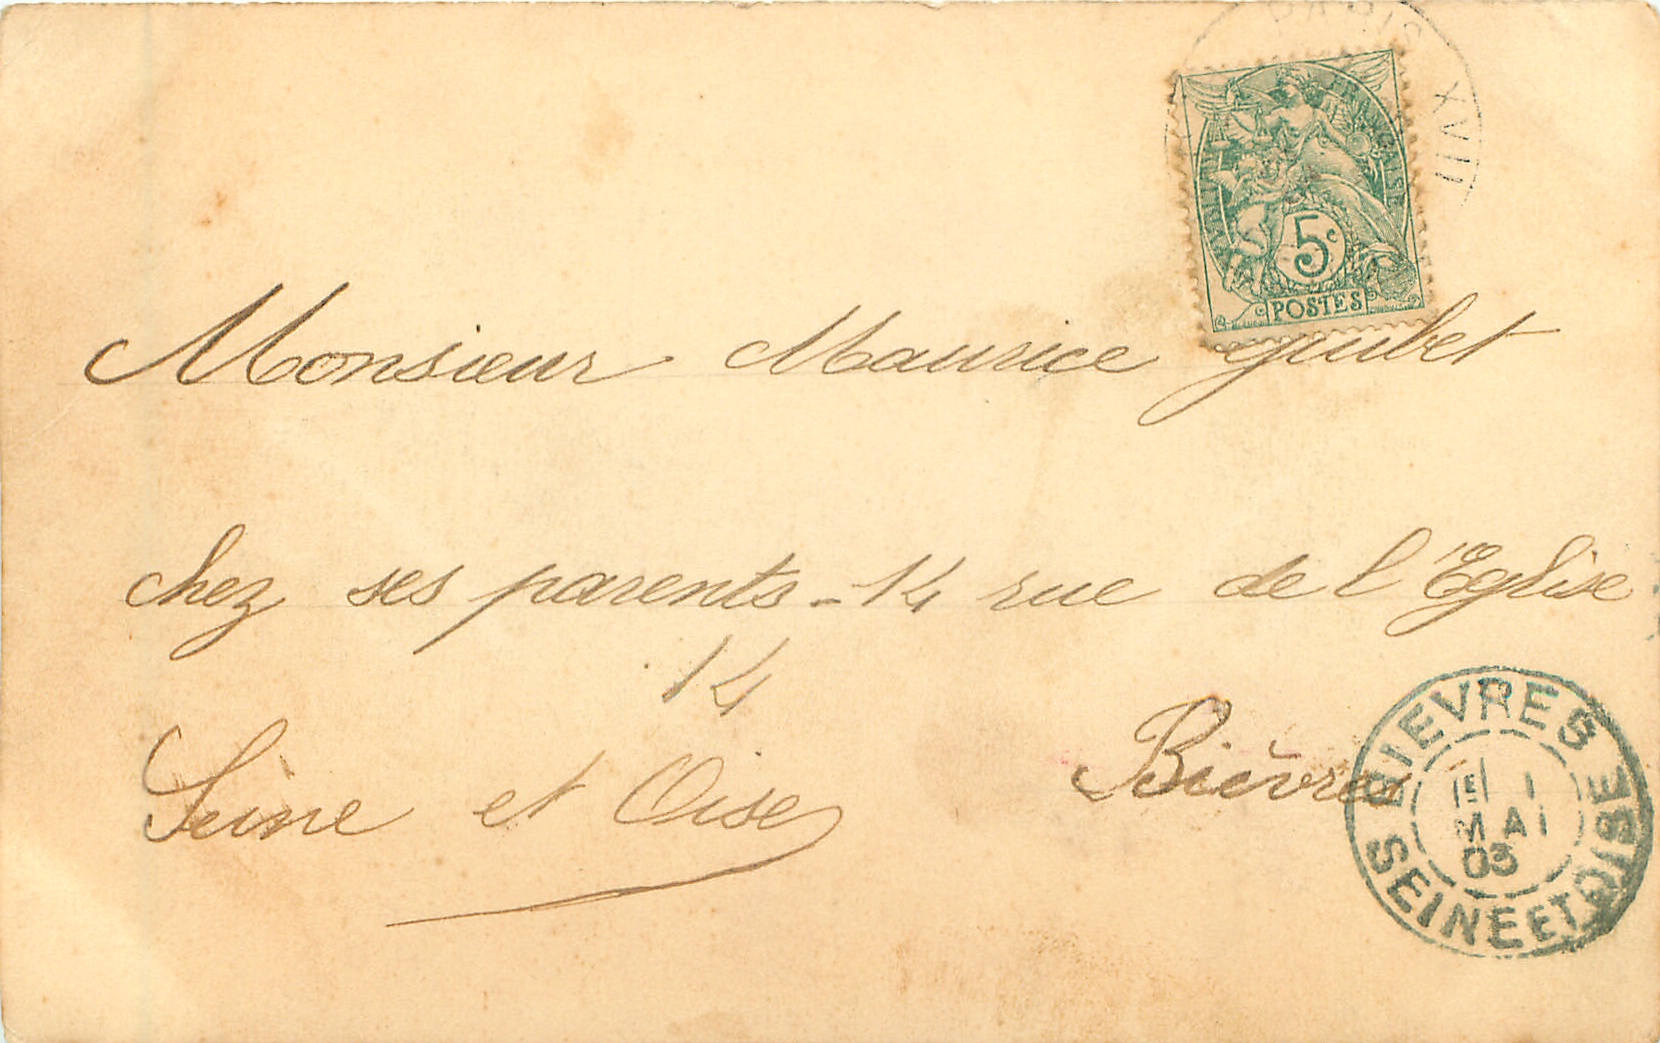 PARIS XVII
RÉPUBLIQUE FRANÇAISE
5c
POSTES
Monsieur Maurice
chez ses parents - 14 rue de l'Eglise
14
Bièvres
Seine et Oise
BIEVRES
1E 1
MAI
03
SEINE ET OISE